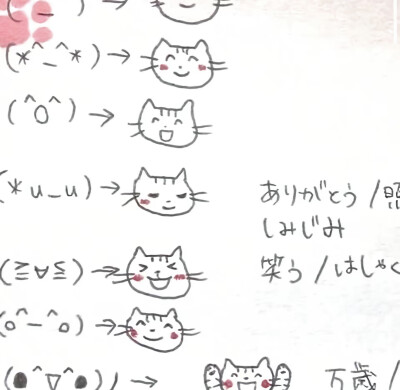 (*^_^*) →
(^o^) →
(*u_u) → ありがとう / 照
しみじみ
(≧∀≦) → 笑う / はしゃぐ
(o^-^o) →
(●^▽^●)ノ → 万歳 /